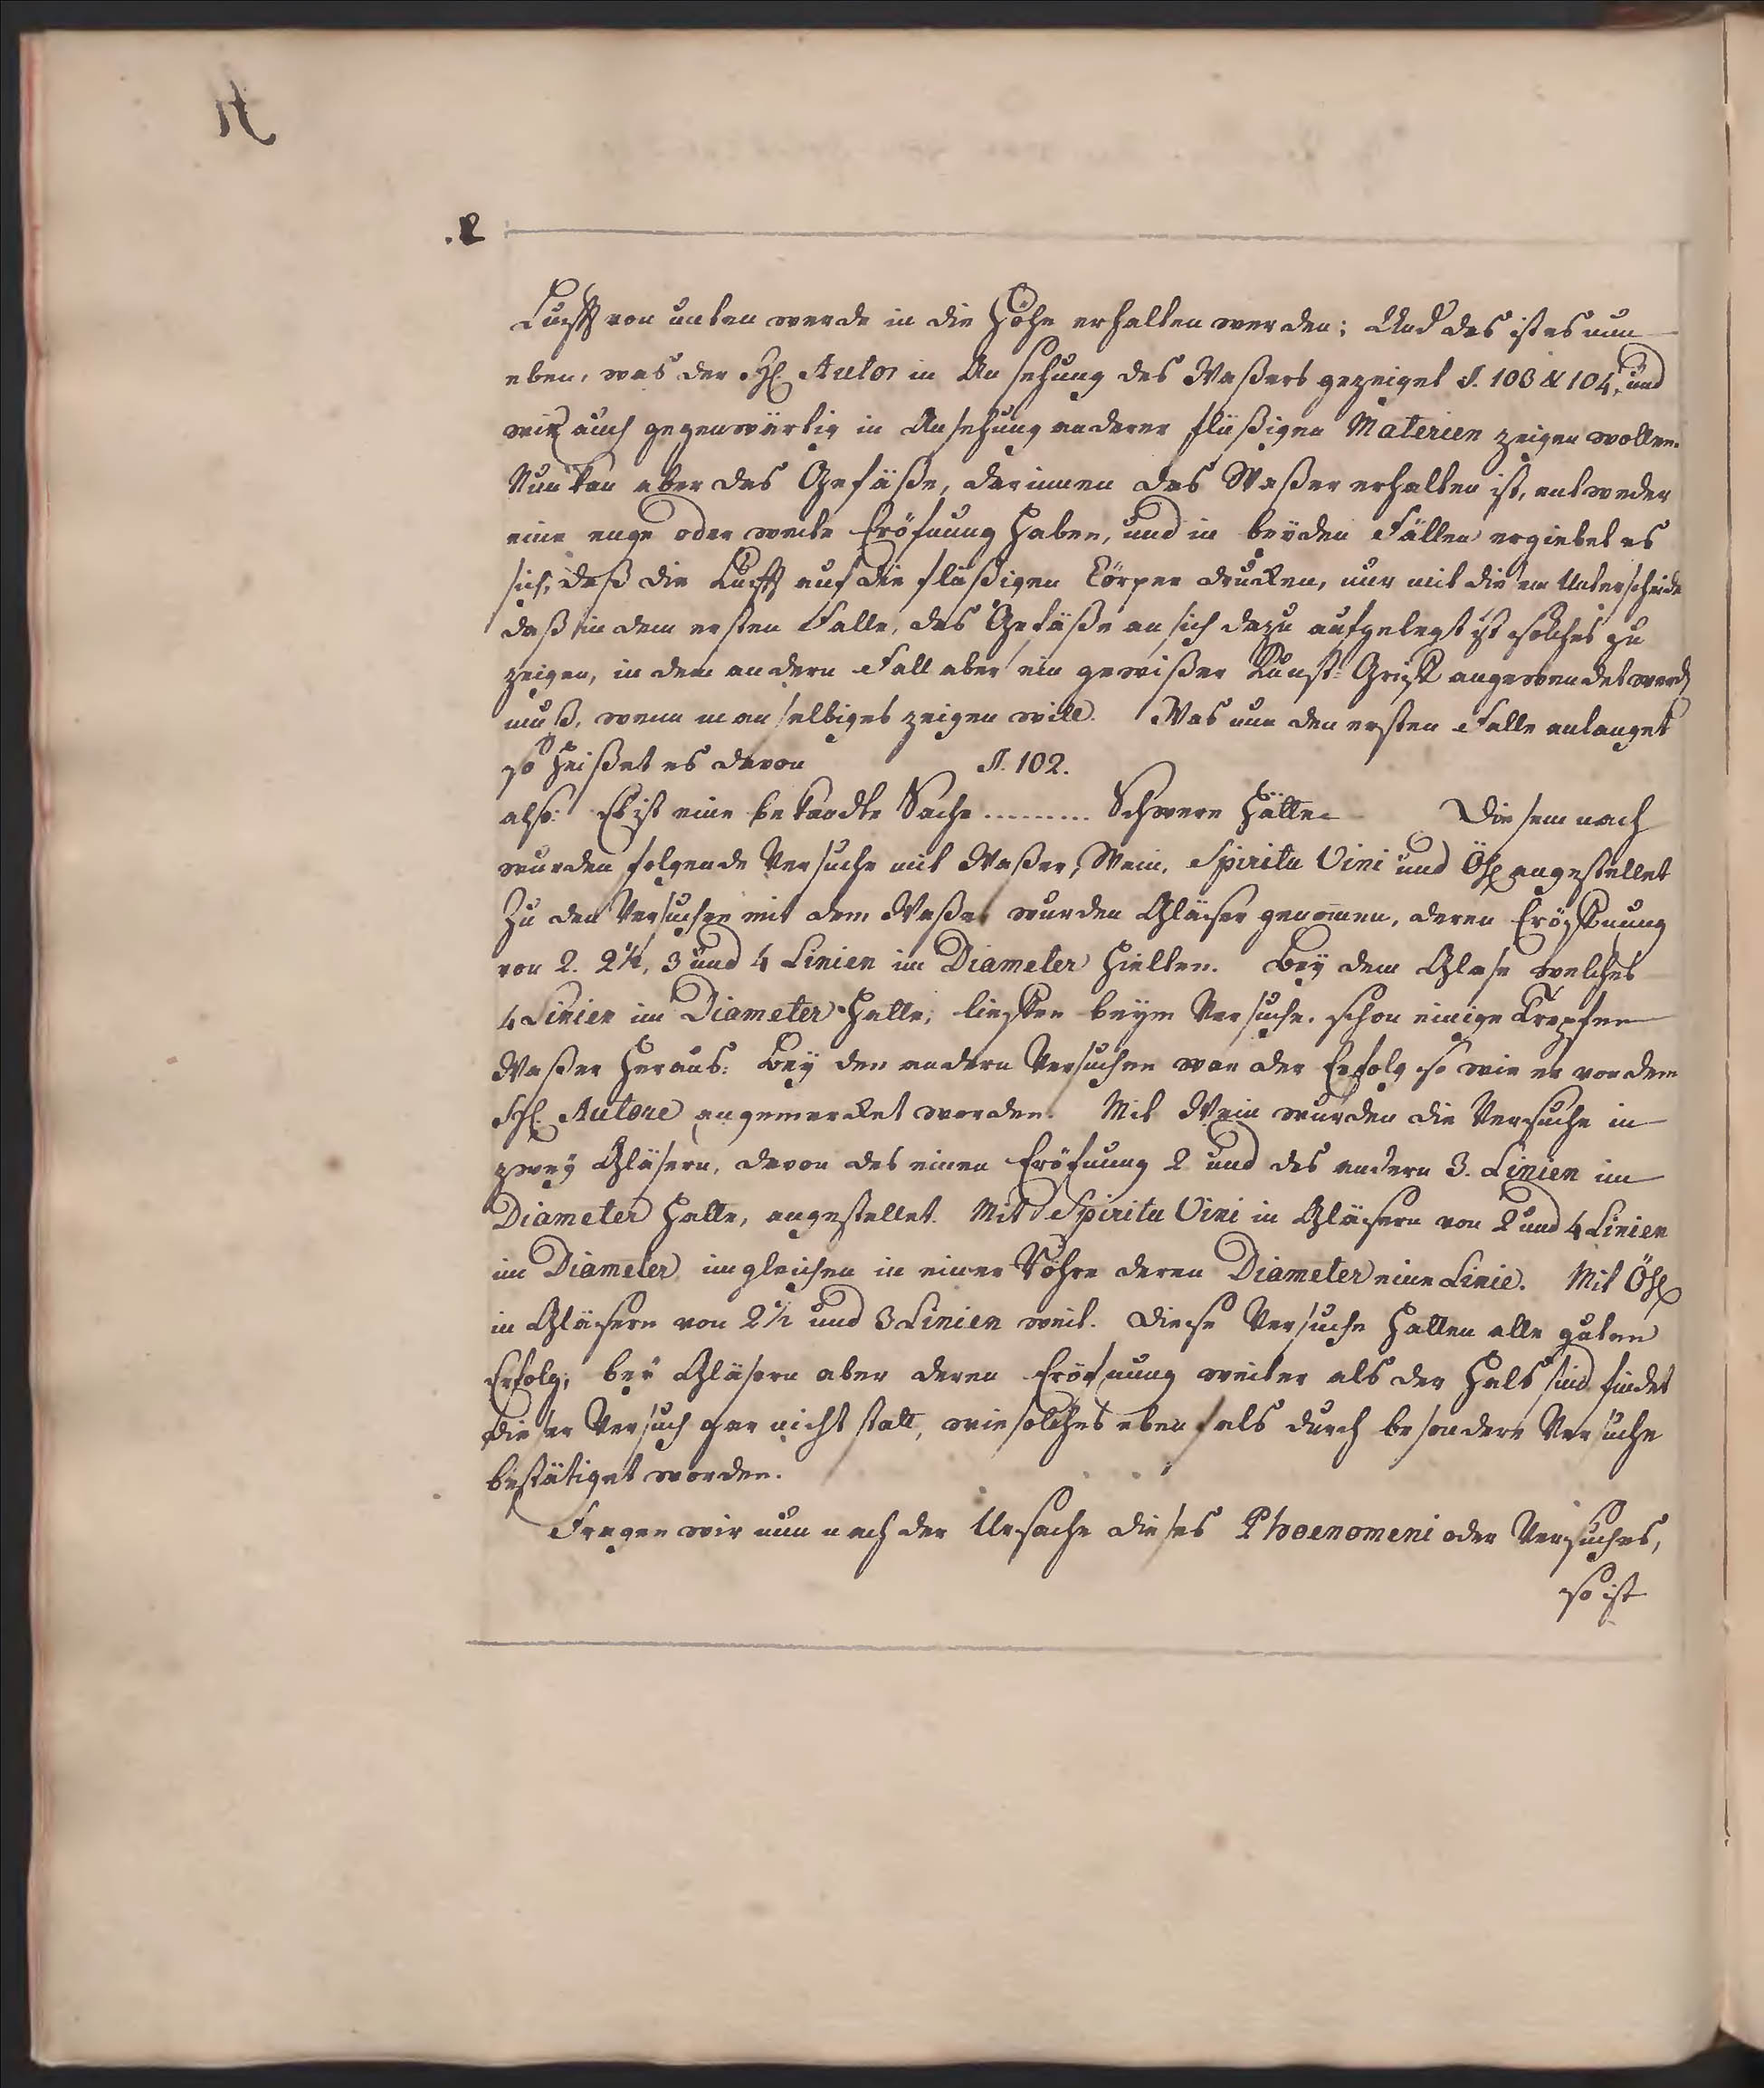 2.
Lufft von unten werde in die Höhe erhalten werden; Und das ist es nun
eben, was der H. Autor in Ansehung des Waßers gezeiget §. 103 & 104, und
wir auch gegenwärtig in Ansehung anderer flüßigen Materien zeigen wollen.
Nun kan aber das Gefäße, darinnen das Waßer erhalten ist, entweder
eine enge oder weite Eröfnung haben, und in beyden Fällen ergiebet es
sich, daß die Lufft auf die flüßigen Cörper drucken, nur mit diesem Unterscheide
daß in dem ersten Falle, das Gefäße an sich dazu aufgelegt ist solches zu
zeigen, in dem andern Fall aber ein gewißer Kunst-Griff angewendet werd
muß, wenn man selbiges zeigen will. Was nun den ersten Falle anlanget
so heißet es davon §. 102.
also: Es ist eine bekandte Sache ......... Schwere hätte Diesem nach
wurden folgende Versuche mit Waßer, Wein, Spiritu Vini und Öhl angestellet
Zu den Versuchen mit dem Waßer wurden Gläser genommen, deren Eröffnung
von 2. 2½, 3 und 4 Linien im Diameter hielten. Bey dem Glase welches
4 Linien im Diameter hatte, lieffen beym Versuche schon einige Tropfen
Waßer heraus: Bey den andern Versuchen war der Erfolg so wie er von dem
H. Autore angemercket worden. Mit Wein wurden die Versuche in
zwey Gläsern, davon des einen Eröfnung 2 und des andern 3. Linien im
Diameter hatte, angestellet. Mit Spiritu Vini in Gläsern von 2 und 4 Linien
im Diameter ingleichen in einer Röhre deren Diameter eine Linie. Mit Öhl
in Gläsern von 2½ und 3 Linien weit. Diese Versuche hatten alle guten
Erfolg; bey Gläsern aber deren Eröfnung weiter als der Hals sind findet
dieser Versuch gar nicht statt, wie solches ebenfals durch besondere Versuche
bestätiget worden.
Fragen wir nun nach der Ursache dieses Phoenomeni oder Versuches,
so ist